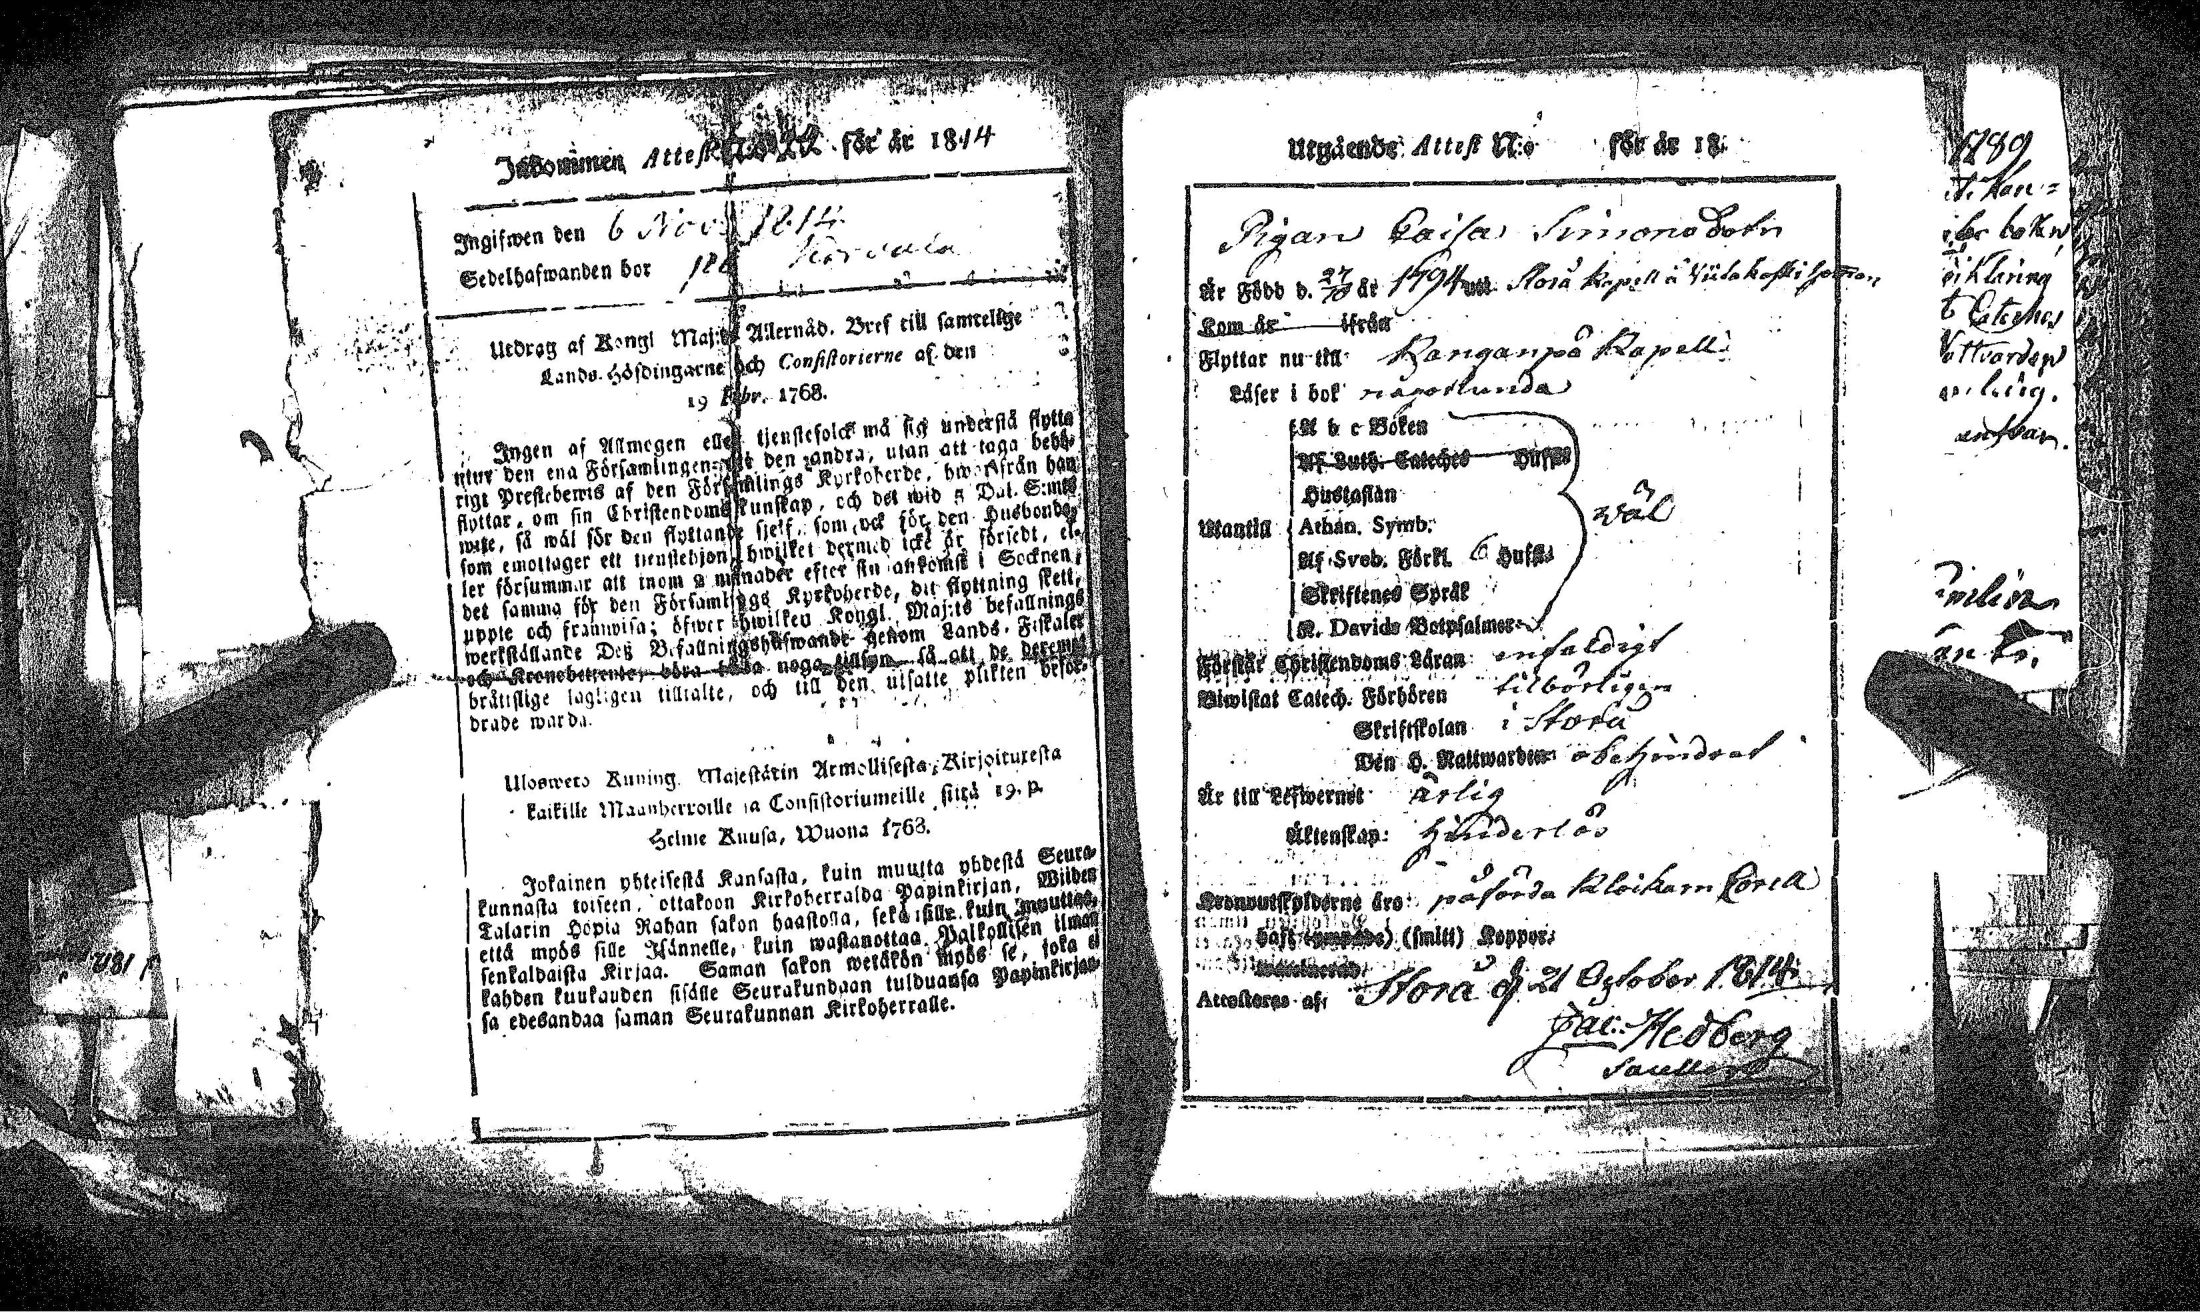 Inkommen Attest N:o för år 1814
Ingifwen den 6 Nov. 1814
Sedelhafwanden bor på
Utdrag af Kongl Maj:ts Allernåd. Bref till samtelige
Lands-Höfdingarne och Consistorierne af den
19 Febr. 1768.
Ingen af Allmogen eller tjenstefolck må sig understå flytta
ifrån den ena Församlingen till den andra, utan att taga behö-
rigt Prestebewis af den Församlings Kyrkoherde, hwarifrån han
flyttar, om sin Christendoms kunskap, och det wid 5 Dal. S:mts
wite, så wäl för den flyttande sjelf, som ock för den Husbonde,
som emottager ett tjenstehjon, hwilket dermed icke är försedt, el-
ler försummar att inom 2 månader efter sin ankomst i Socknen,
det samma för den Församlings Kyrkoherde, dit flyttning skett,
uppte och framwisa; öfwer hwilket Kongl. Maj:ts befallnings
werkställande Deß Befallningshafwande genom Lands-Fiskaler
och Kronobetjente, böra hafwa noga tillsyn, så att de deremot
bråttslige lagligen tilltalte, och till den utsatte plikten befor-
drade warda.
Ulosweto Kuning. Majestätin Armollisesta Kirjoituxesta
kaikille Maanherroille ja Consistoriumeille siitä 19. p.
Helme Kuusa, Wuona 1768.
Jokainen yhteisestä Kansasta, kuin muutta yhdestä Seura-
kunnasta toiseen, ottakoon Kirkoherralda Papinkirjan, Wiiden
Talarin Hopia Rahan sakon haastolla, sekä sille kuin muuttaa,
että myös sille Isännelle, kuin wastanottaa Palkollisen ilman
senkaldaista Kirjaa. Saman sakon wetäkön myös se, joka ei
kahden kuukauden sisälle Seurakundaan tulduansa Papinkirjan-
sa edesandaa saman Seurakunnan Kirkoherralle.
Utgående Attest N:o för år 18
Pigan Caisa Simonsdotn
Är Född d. 27/10 år 1794 uti Storå Kapell
Kom år ifrån
Flyttar nu till Kanganpä Kapell
Läser i bok någorlunda
A b c Boken
Af Luth. Cateches Hufst.
Hustaflan
Utantill Athan. Symb. wäl
Af Sveb. Förkl. 6 Hufst.
Skriftenes Språk
K. Davids Botpsalmer
Förstår Christendoms Läran enfaldigt
Biwistat Catech. Förhören tilbörligen
Skriftskolan i Storå
Den H. Nattwarden obehindrat
Är till Lefwernet ärlig
Äktenskap: hinderlös
Kronoutskylderne äro påförda
haft (smitt) Koppor.
Attesteras af; Storå d 21 October 1814.
Jac: Hedberg
1789